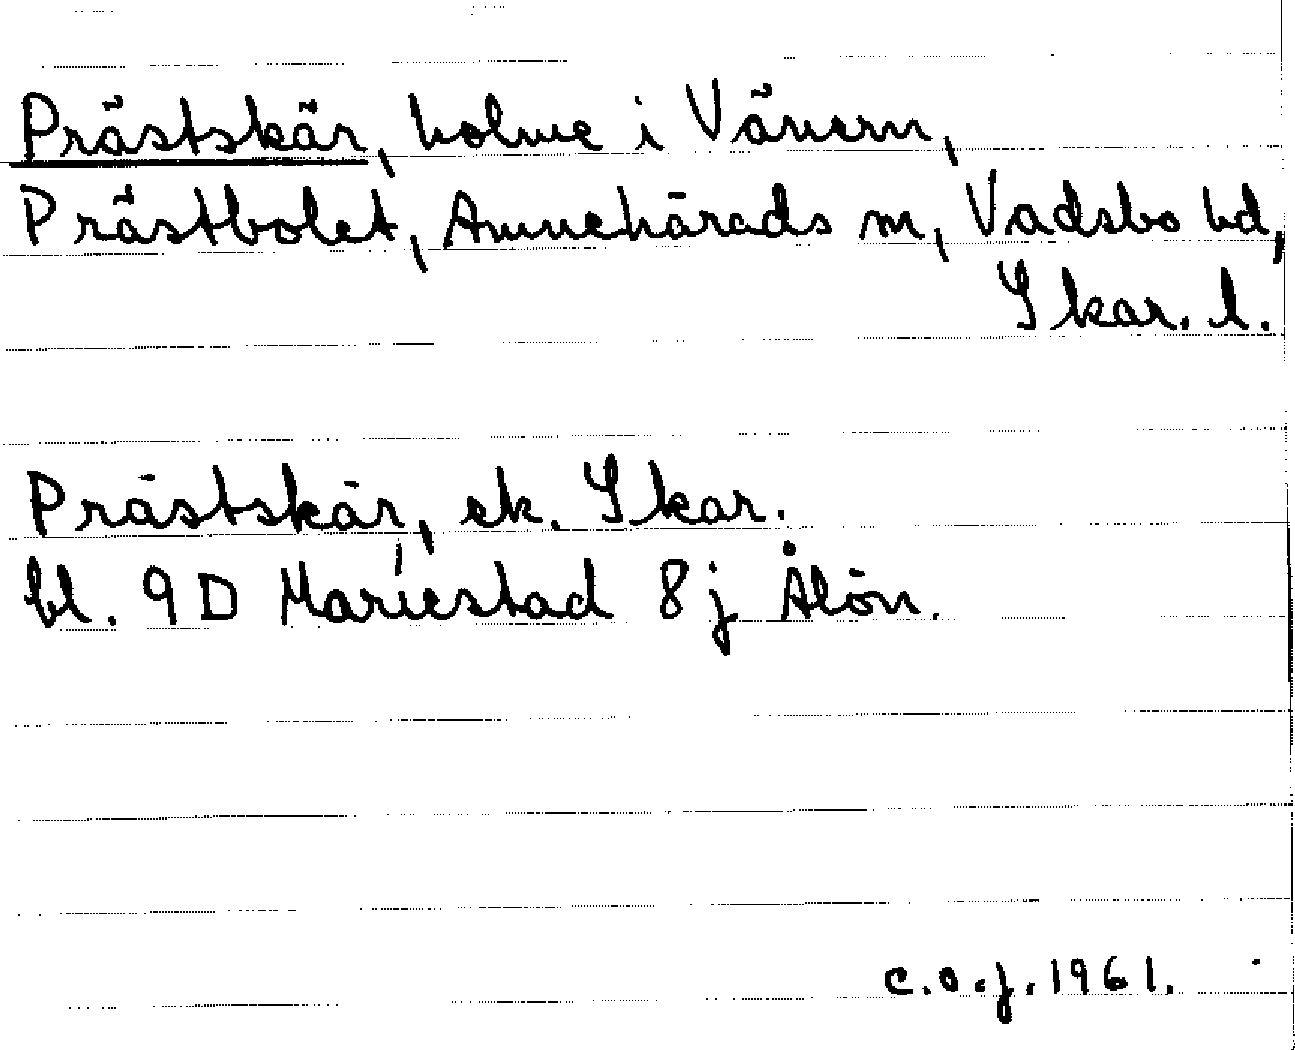 Prästskär, holme i Vänern,
Prästbolet, Amnehärads sn, Vadsbo hd,
Skar. l.
Prästskär, ek. Skar.
bl. 9D Mariestad 8j Ålön.
C.O.J. 1961.